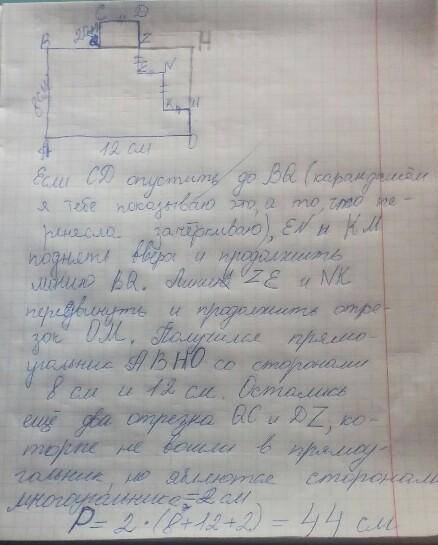 C D
2 см
B Q Z H
E N
8 см
K M
A O
12 см
Если CD опустить до BQ (карандашом
я тебе показываю это, а то, что пе-
ренесла зачёркиваю), EN и KM
поднять вверх и продолжить
линию BQ. Линии ZE и NK
передвинуть и продолжить отре-
зок OM. Получился прямо-
угольник ABHO со сторонами
8 см и 12 см. Остались
ещё два отрезка QC и DZ, ко-
торые не вошли в прямоу-
гольник, но являются сторонами
многоугольника = 2 см
P = 2 · (8+12+2) = 44 см